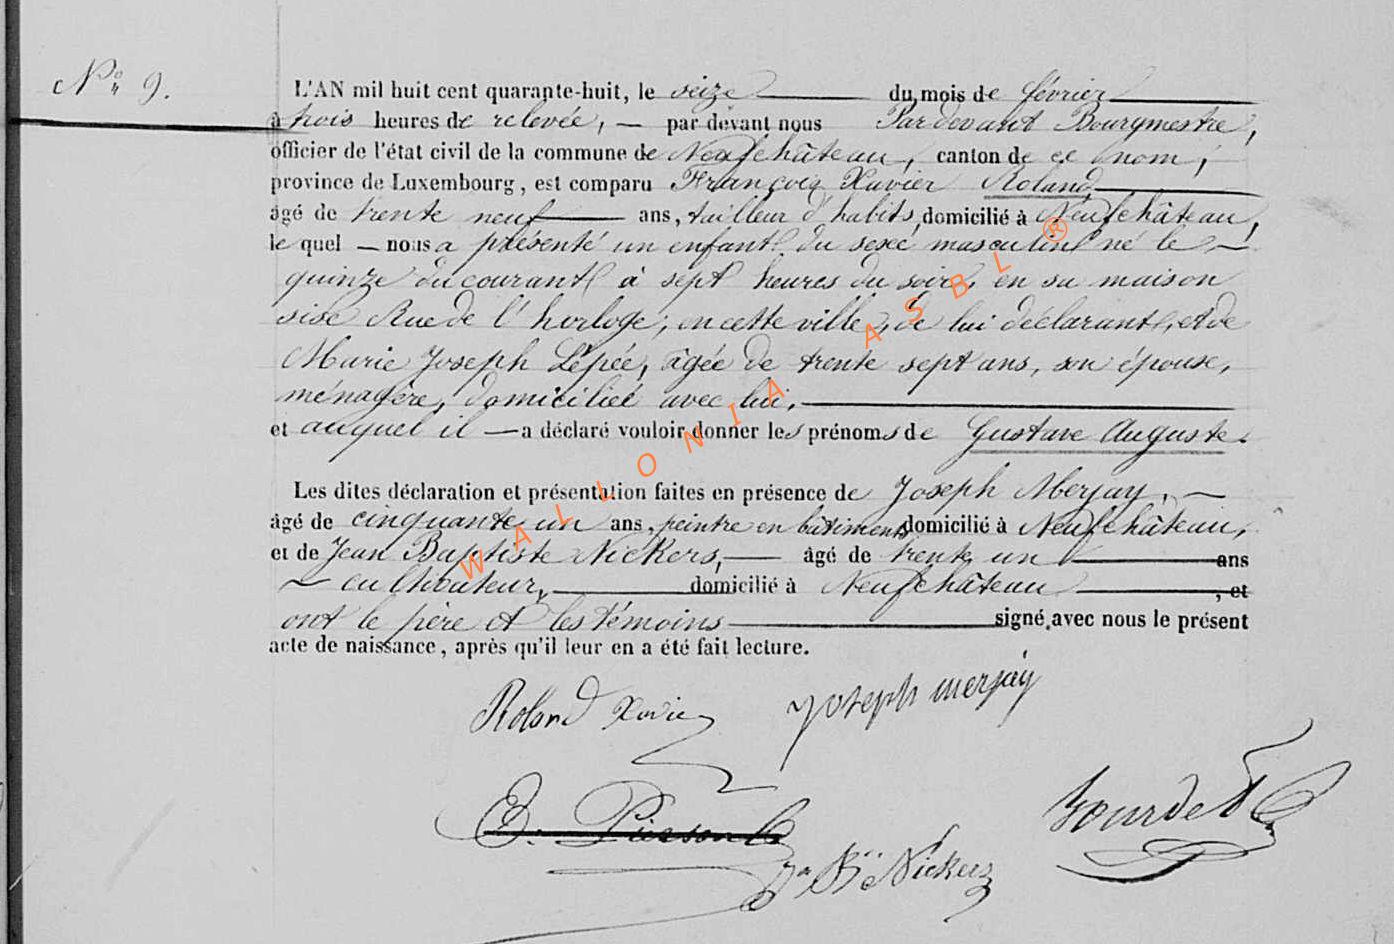 N° 9.
L'AN mil huit cent quarante-huit, le seize du mois de février
à trois heures de relevée, par devant nous Pardevant Bourgmestre,
officier de l'état civil de la commune de Neufchâteau, canton de ce nom,
province de Luxembourg, est comparu François Xavier Roland
âgé de trente neuf ans, tailleur d'habits, domicilié à Neufchâteau,
le quel nous a présenté un enfant du sexe masculin né le
quinze du courant à sept heures du soir, en sa maison
sise Rue de l'horloge, en cette ville, de lui déclarant, et de
Marie Joseph Lépée, âgée de trente sept ans, son épouse,
ménagère, domiciliée avec lui,
et auquel il a déclaré vouloir donner les prénoms de Gustave Auguste.
Les dites déclaration et présentation faites en présence de Joseph Merjay,
âgé de cinquante un ans, peintre en bâtiments domicilié à Neufchâteau,
et de Jean Baptiste Nickers, âgé de trente un ans
cultivateur, domicilié à Neufchâteau, et
ont le père et les témoins signé avec nous le présent
acte de naissance, après qu'il leur en a été fait lecture.
Roland Xavier Joseph merjay
E. Pierson Bourdet
Jn Bte Nickers
WALLONIA ASBL ®